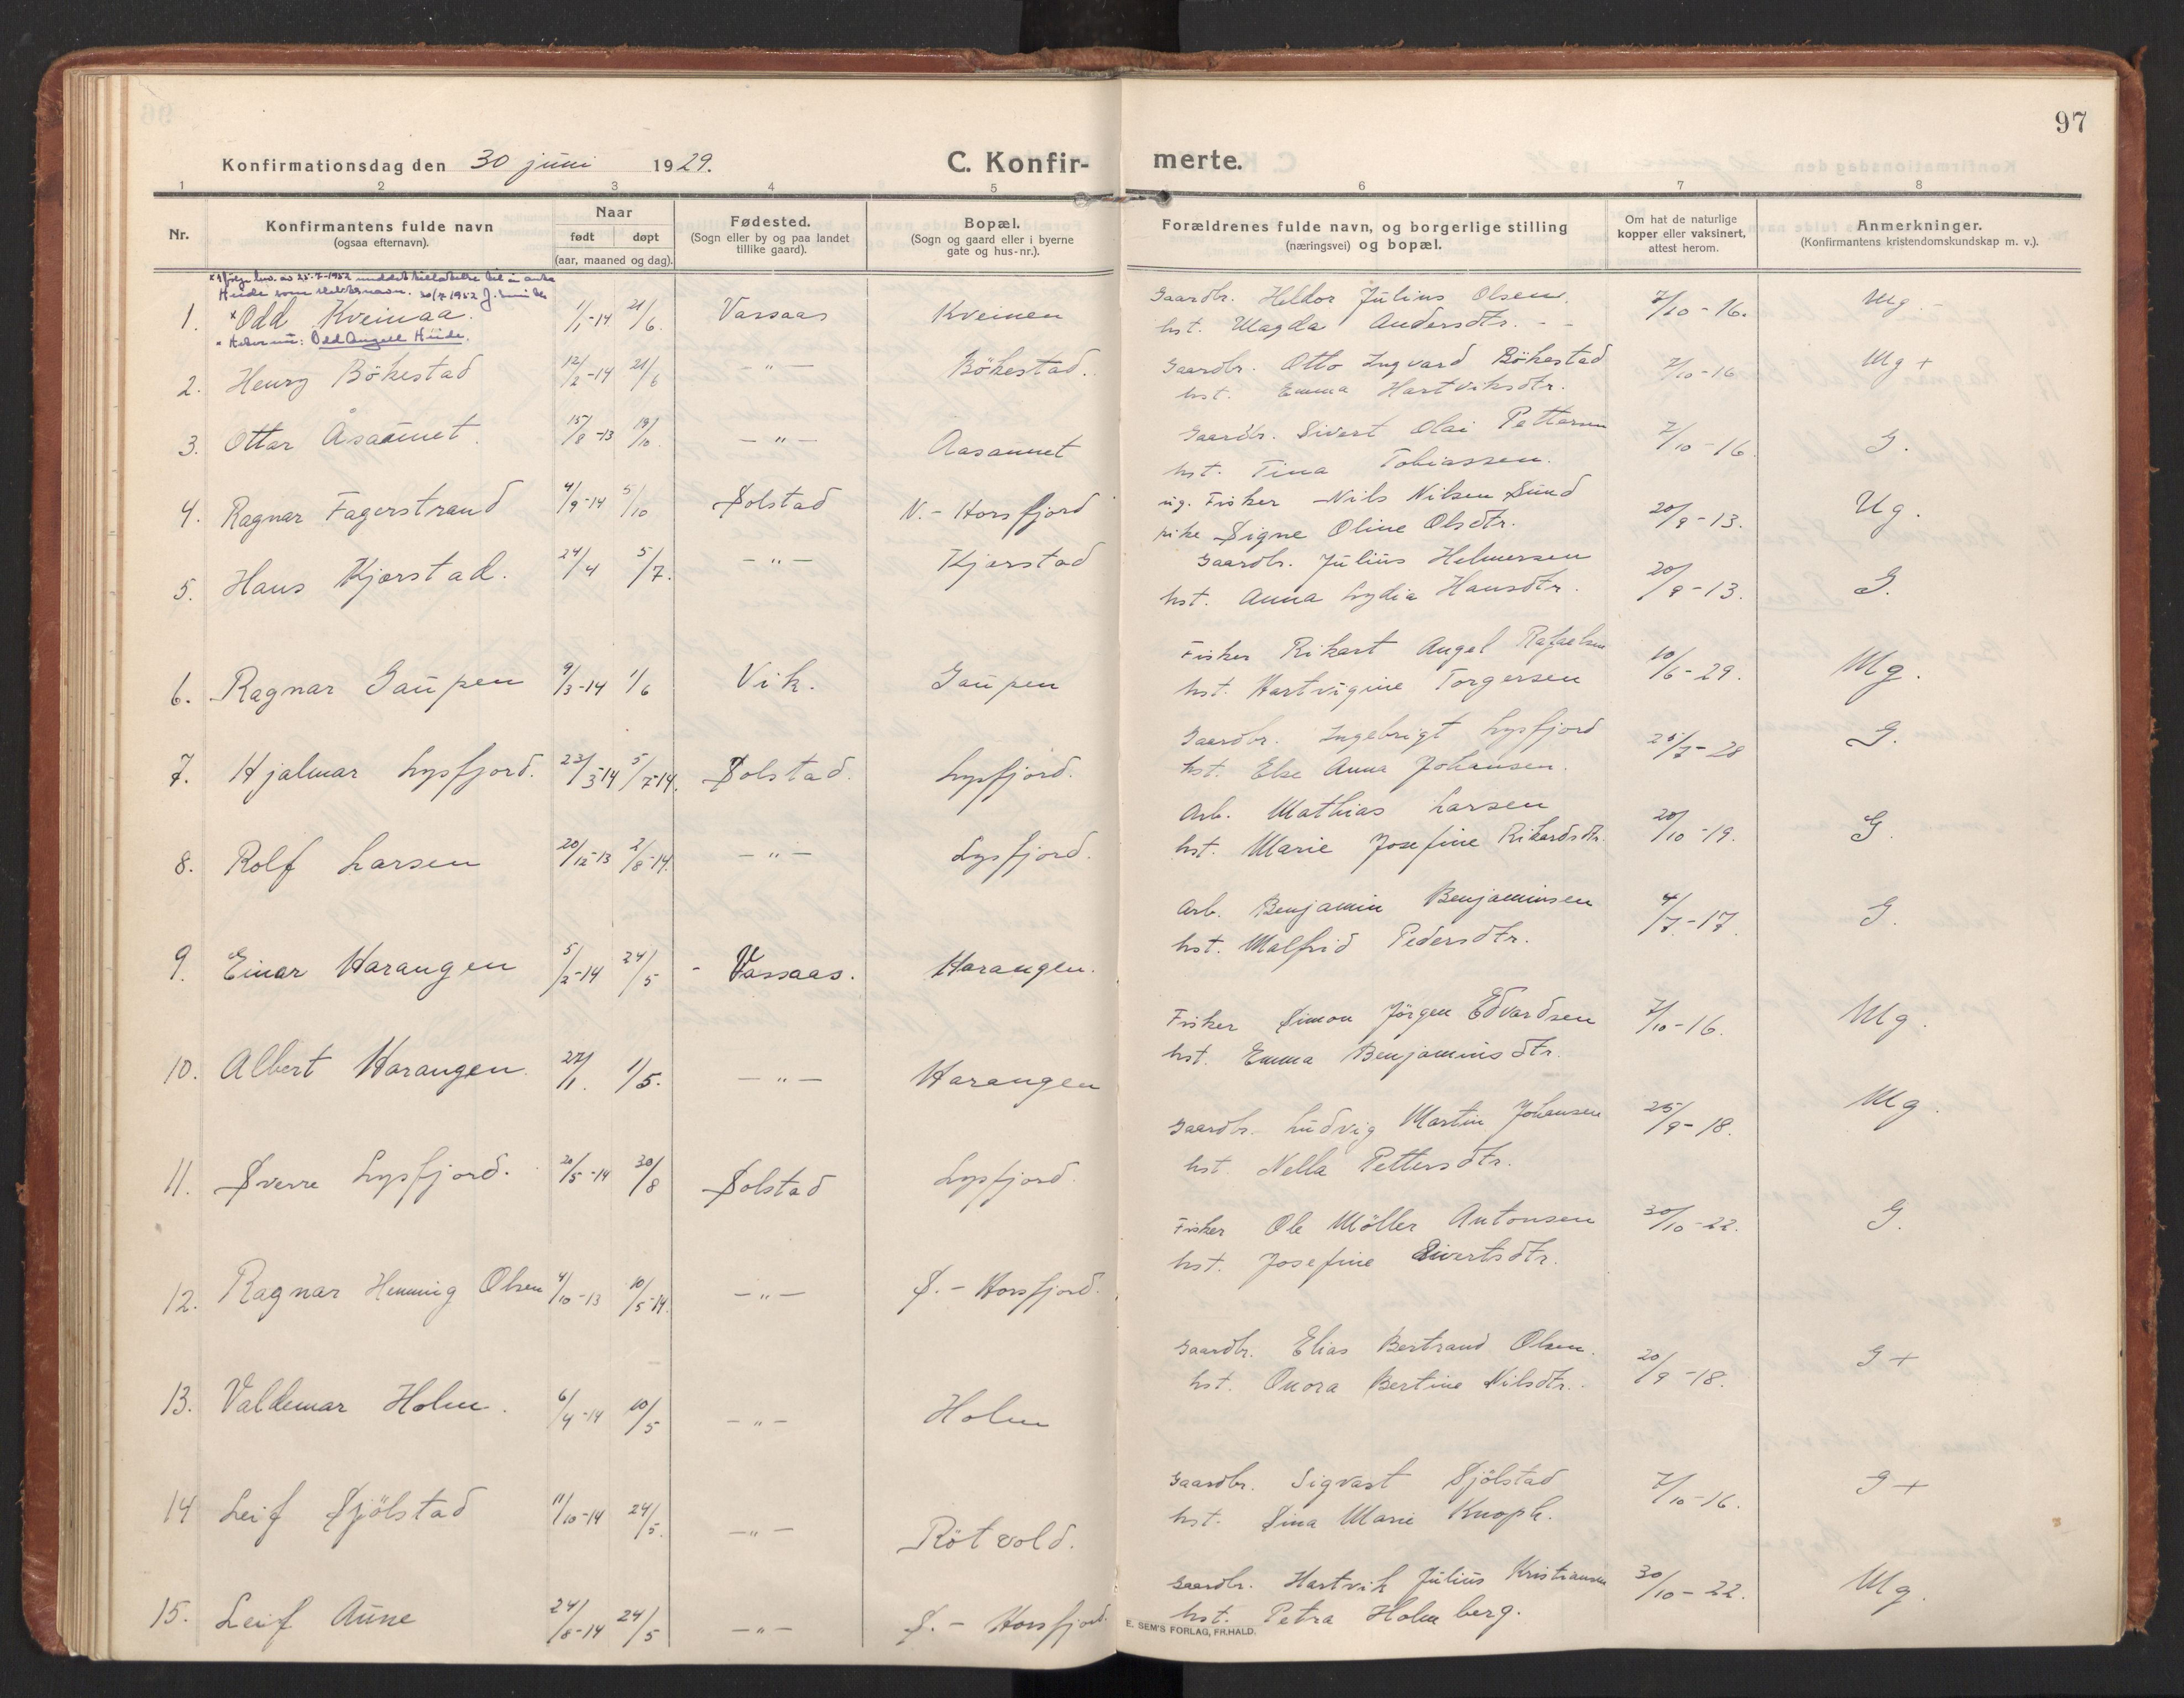 97
Konfirmationsdag den 30 juni 1929. C. Konfir- merte.
1 2 3 4 5 6 7 8
Nr. Konfirmantens fulde navn (ogsaa efternavn). Naar født døpt (aar, maaned og dag). Fødested. (Sogn eller by og paa landet tillike gaard). Bopæl. (Sogn og gaard eller i byerne gate og hus-nr.). Forældrenes fulde navn, og borgerlige stilling (næringsvei) og bopæl. Om hat de naturlige kopper eller vaksinert, attest herom. Anmerkninger. (Konfirmantens kristendomskundskap m. v.).
av 25-7-1952 meddelt tillatelse til å anta
Hiide som slektsnavn. 30/7 1952
1. × Odd Kveinaa. 1/1-14 21/6. Vassaas Kveinen Gaardbr. Heldor Julius Olsen. 7/10-16. Mg.
× Heter nu: Odd Angell Hiide. hst. Magda Andersdtr. - -
2. Henry Bökestad 12/2-14 21/6 -"- Bökestad. Gaardbr. Otto Ingvard Bökestad 7/10-16 Mg +
hst. Emma Hartviksdtr.
3. Ottar Åsaunet. 15/8-13 19/10. -"- Aasaunet Gaardbr. Sivert Olai Pettersen 7/10-16. G.
hst. Tina Tobiassen.
4. Ragnar Fagerstrand 4/9-14 5/10 Solstad N.- Horsfjord ug. Fisker Nils Nilsen Sund 20/9-13. Ug.
pike Signe Oline Olsdtr.
5. Hans Kjærstad. 24/4 5/7. -"- Kjærstad Gaardbr. Julius Helmersen 20/9-13. G.
hst. Anna Lydia Hansdtr.
6. Ragnar Gaupen 9/3-14 1/6 Vik. Gaupen Fisker Rikart Angel Rafaelsen 10/6-29. Mg.
hst. Hartvigine Torgersen
7. Hjalmar Lysfjord. 23/3-14 5/7-14. Solstad. Lysfjord. Gaardbr. Ingebrigt Lysfjord 25/7-28 G.
hst. Else Anna Johansen.
8. Rolf Larsen 20/12-13 2/8-14. -"- Lysfjord. Arb. Mathias Larsen 20/10-19. G.
hst. Marie Josefine Rikardsdtr.
9. Einar Harangen 5/2-14 24/5 - Vassaas. Harangen. Arb. Benjamin Benjaminsen 4/7-17. G.
hst. Malfrid Pedersdtr.
10. Albert Harangen. 27/1. 1/5. -"- Harangen Fisker Simon Jörgen Edvardsen 7/10-16. Mg.
hst. Emma Benjaminsdtr.
11. Sverre Lysfjord. 20/5-14 30/8 Solstad Lysfjord. Gaardbr. Ludvig Martin Johansen 25/9-18. Mg.
hst. Nella Pettersdtr.
12. Ragnar Henning Olsen 4/10-13 10/5-14. -"- S.- Horsfjord. Fisker Ole Möller Antonsen 30/10-22. G.
hst. Josefine Sivertsdtr.
13. Valdemar Holm. 6/4-14 10/5 -"- Holm Gaardbr. Elias Bertrand Olsen. 20/9-18. G +
hst. Onora Bertine Nilsdtr.
14 Leif Sjölstad 11/10-14 24/5. -"- Rötvold. Gaardbr. Sigvart Sjölstad 7/10-16. G +
hst. Sina Marie Knoph.
15. Leif Aune 24/8-14 24/5 -"- S.- Horsfjord. Gaardbr. Hartvik Julius Kristiansen 30/10-22. Mg.
hst. Petra Holmberg.
E. SEM'S FORLAG, FR.HALD.